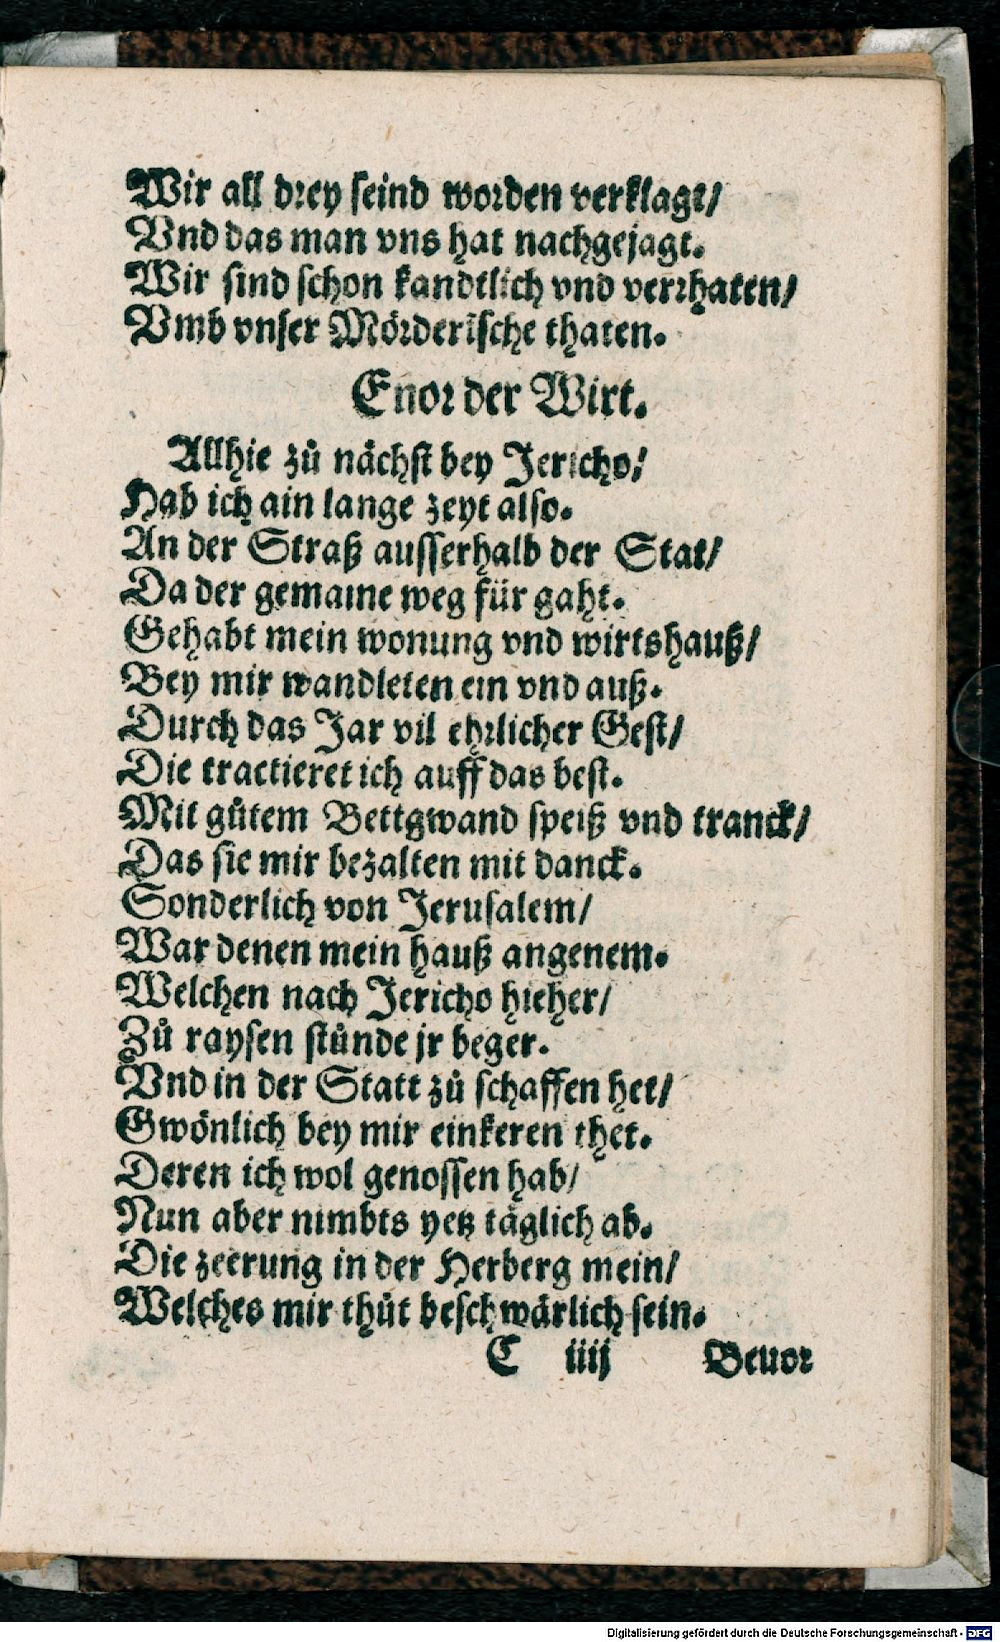 Wir all drey seind worden verklagt/
Vnd das man vns hat nachgejagt.
Wir sind schon kandtlich vnd verrhaten/
Vmb vnser Mörderische thaten.
Enor der Wirt.
Allhie zů nächst bey Jericho/
Hab ich ain lange zeyt also.
An der Straß ausserhalb der Stat/
Da der gemaine weg für gaht.
Gehabt mein wonung vnd wirtshauß/
Bey mir wandleten ein vnd auß.
Durch das Jar vil ehrlicher Gest/
Die tractieret ich auff das best.
Mit gůtem Bettgwand speiß vnd tranck/
Das sie mir bezalten mit danck.
Sonderlich von Jerusalem/
War denen mein hauß angenem.
Welchen nach Jericho hieher/
Zů raysen stůnde jr beger.
Vnd in der Statt zů schaffen het/
Gwönlich bey mir einkeren thet.
Deren ich wol genossen hab/
Nun aber nimbts yetz täglich ab.
Die zeerung in der Herberg mein/
Welches mir thůt beschwärlich sein.
C iiij Beuor
Digitalisierung gefördert durch die Deutsche Forschungsgemeinschaft - DFG